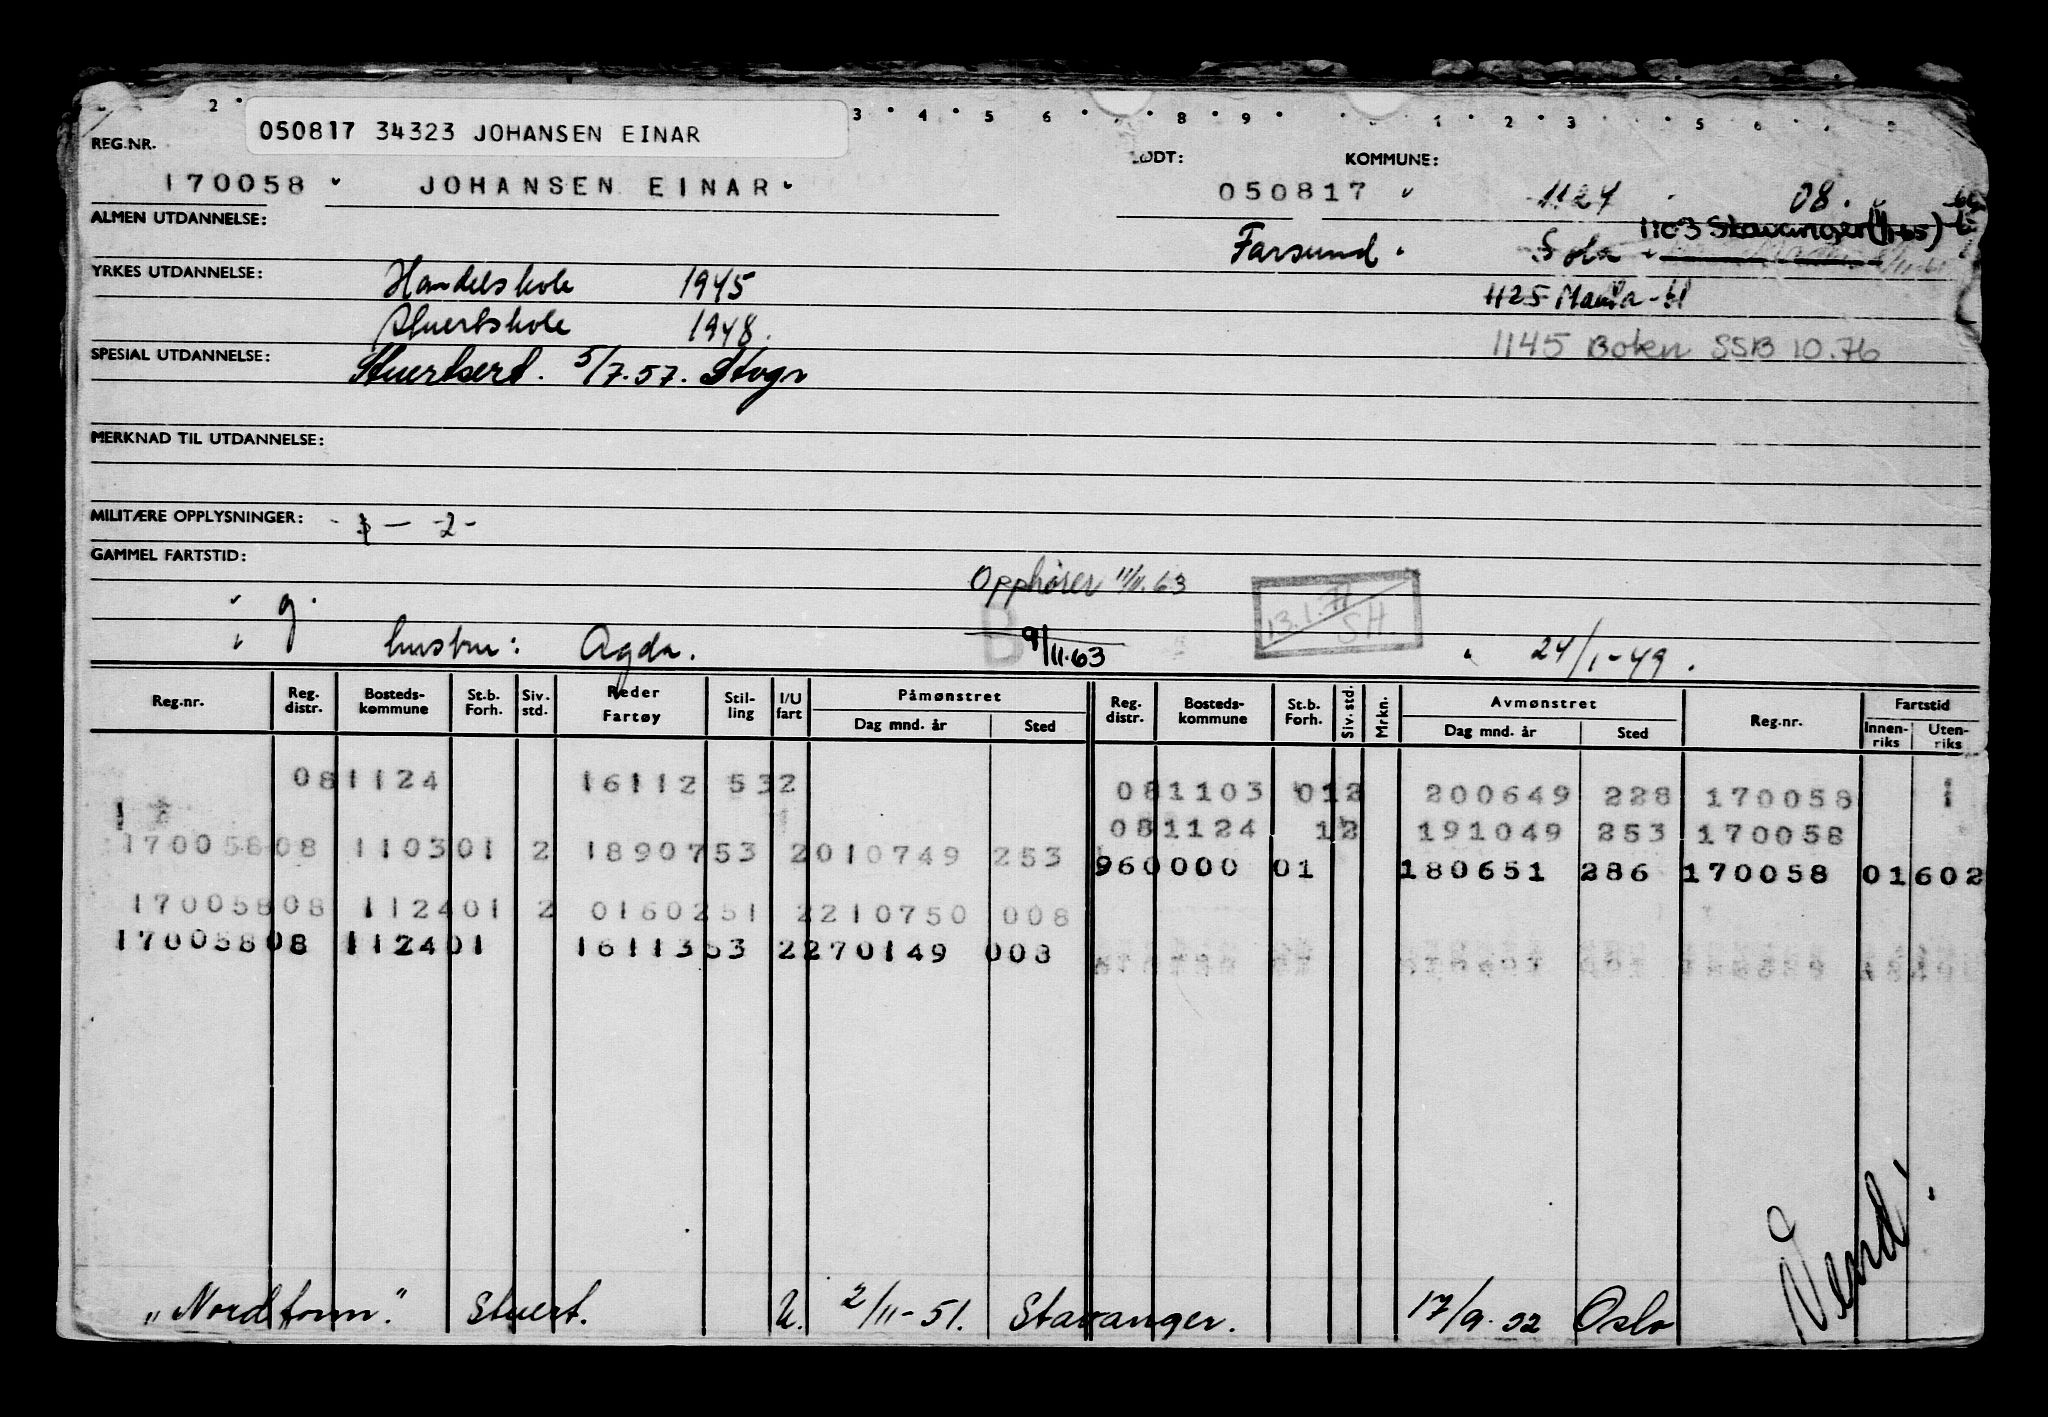 050817 34323 JOHANSEN EINAR
REG.NR. KOMMUNE:
170058 JOHANSEN EINAR 050817 1124 08.
ALMEN UTDANNELSE: 1103 Stavanger
Farsund Sola
YRKES UTDANNELSE: Handelskole 1945
1125
Stuertskole 1948.
SPESIAL UTDANNELSE: 1145 Bokn SSB 10.76
Stuertsert. 5/7.57. Stvgr
MERKNAD TIL UTDANNELSE:
MILITÆRE OPPLYSNINGER: -2-
GAMMEL FARTSTID:
Opphører 11/11.63
g. 13.1.71 SH.
hustru: Agda. B 9/11.63 24/1-49.
Reg.nr. Reg. distr. Bosteds-kommune St.b. Forh. Siv. std. Reder Fartøy Stil-ling I/U fart Påmønstret Dag mnd. år Sted Reg. distr. Bosteds-kommune St.b. Forh. Siv. std. Mrkn. Avmønstret Dag mnd. år Sted Reg.nr. Fartstid Innen-riks Uten-riks
081124 16112 532 081103 012 200649 228 170058 1
081124 12 191049 253 170058
17005808 110301 2 1890753 2010749 253
960000 01 180651 286 170058 01602
17005808 112401 2 0160251 2210750 008
17005808 112401 1611353 2270149 008
"Nordfonn." Stuert. U. 2/11-51. Stavanger. 17/9.52 Oslo
Vend!